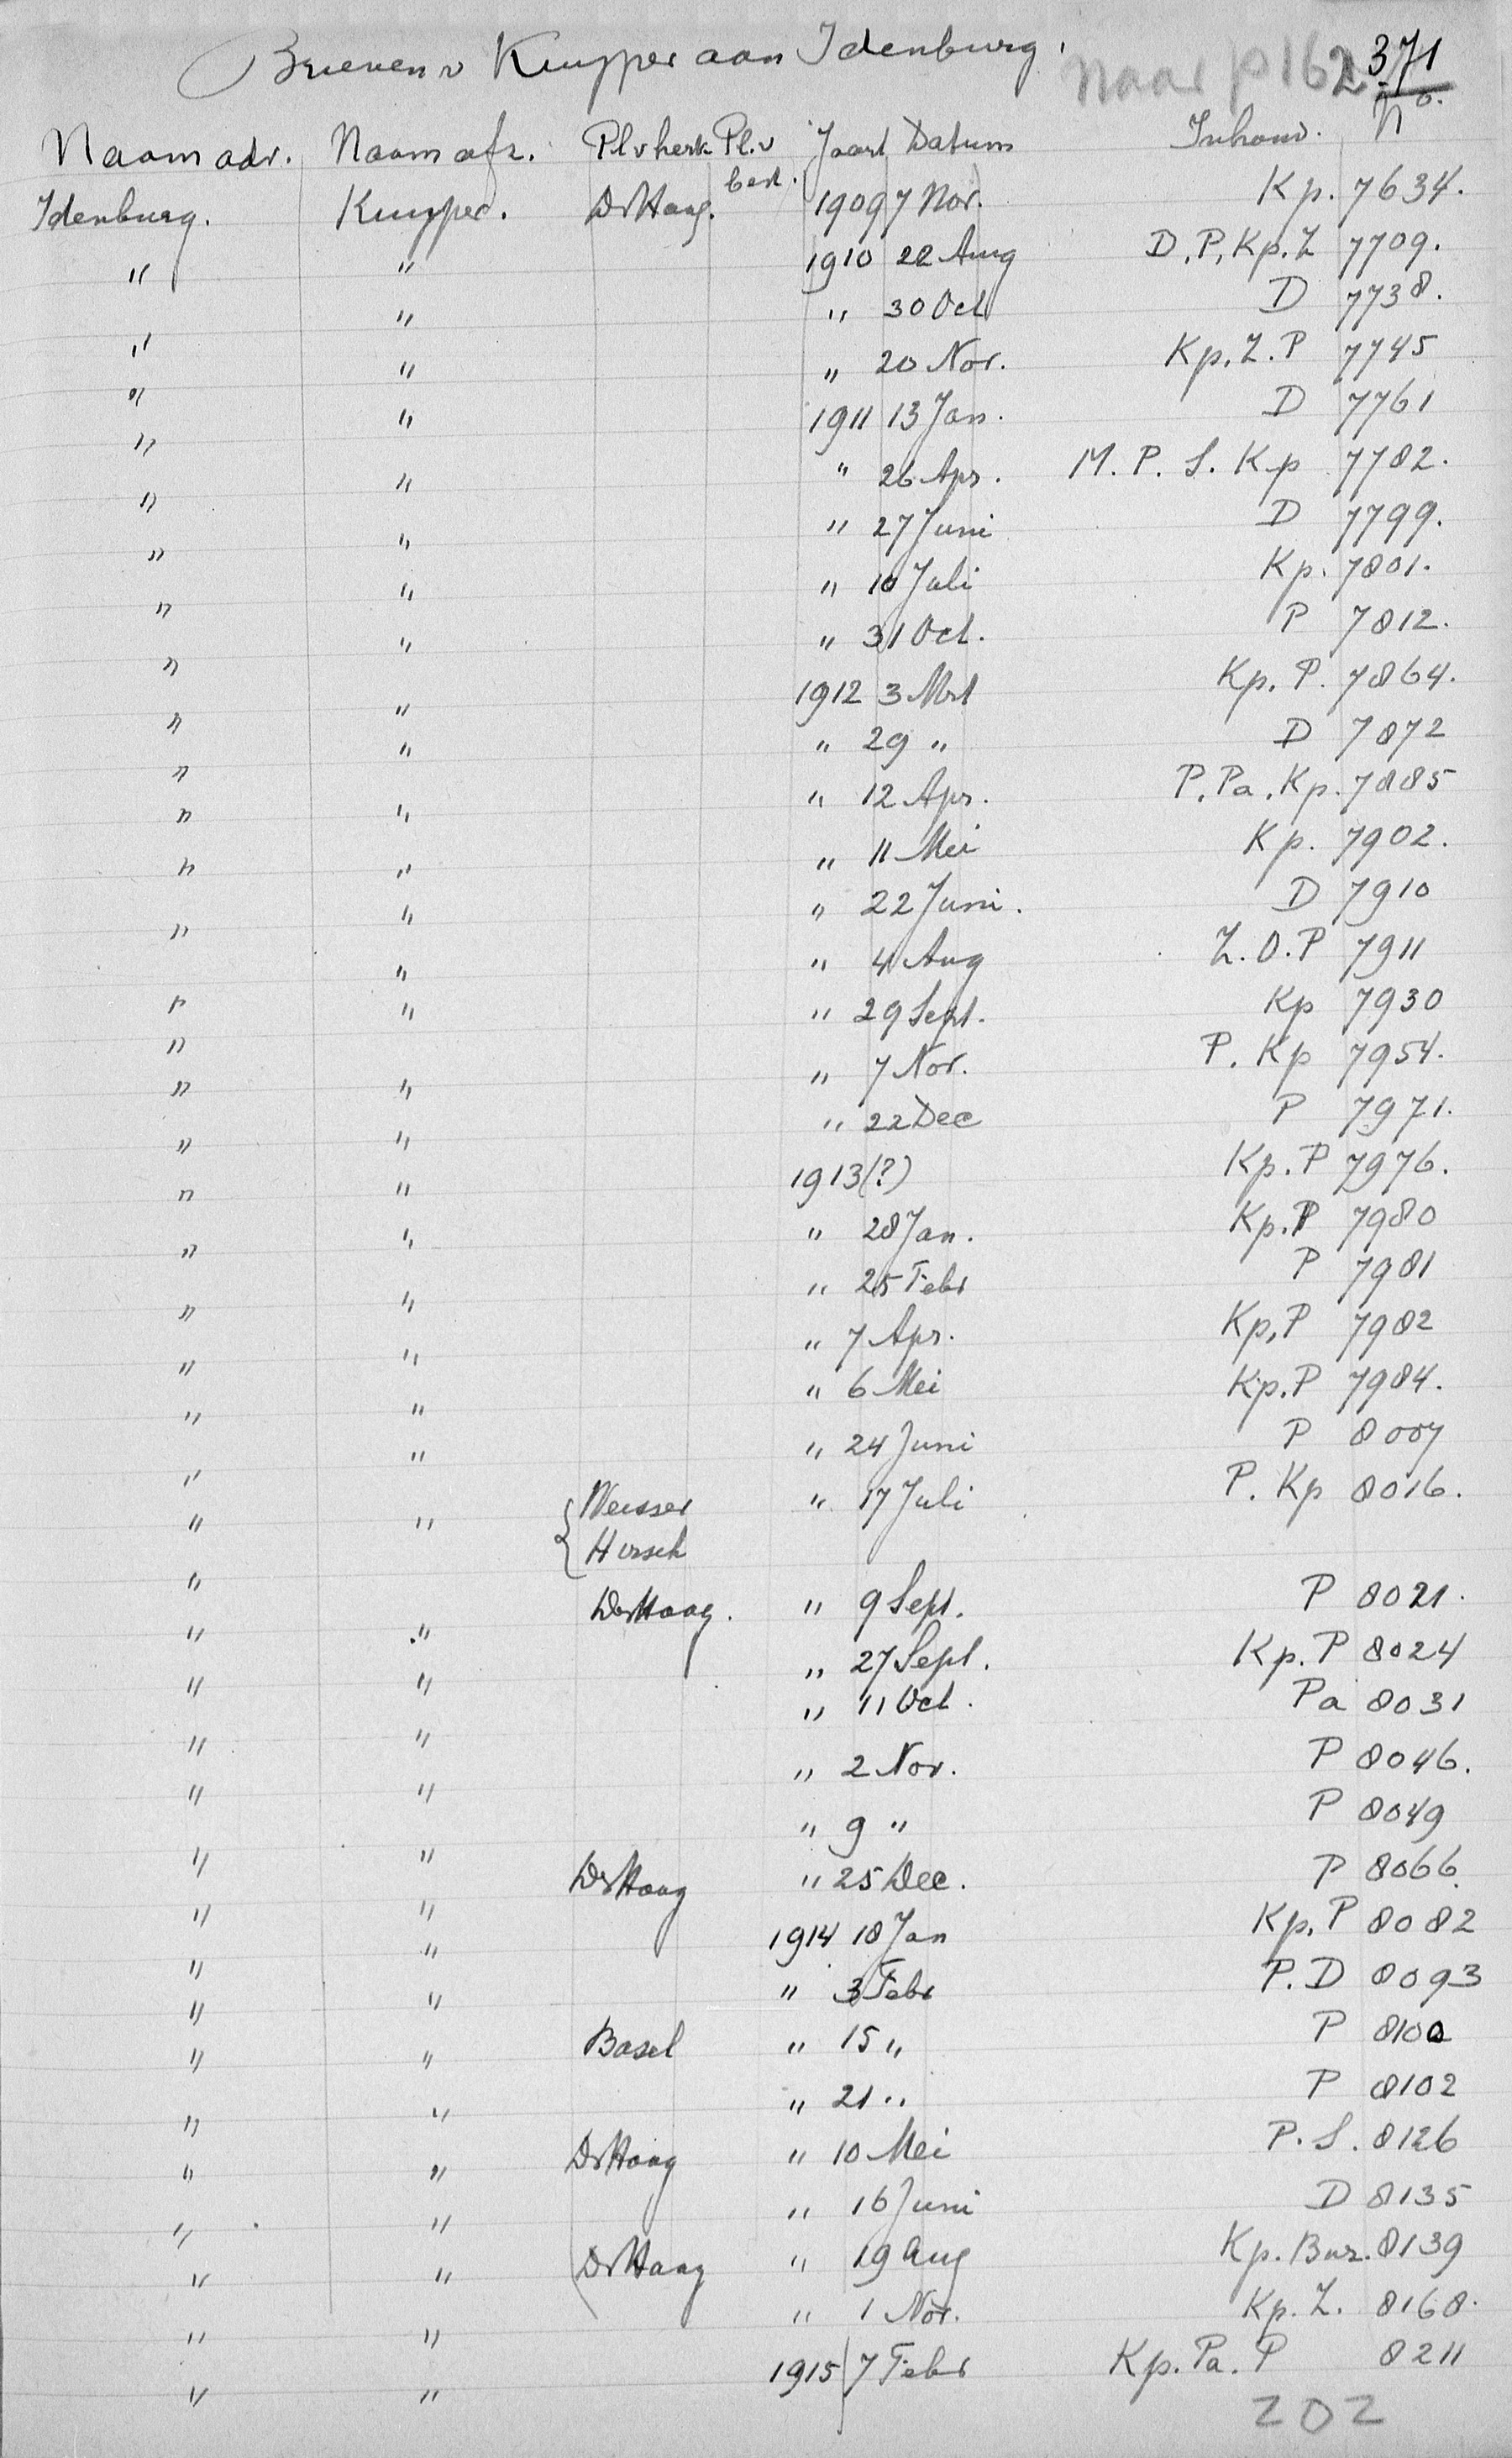 Brieven v Kuyper aan Idenburg.
naar p 162 371
Naam adr. Naam afz. Pl v herk Pl. v best. Jaart Datum Inhoud. No.
Idenburg. Kuyper. Den Haag. 1909 7 Nov. Kp. 7634.
" " 1910 22 Aug D. P. Kp. Z 7709.
" " " 30 Oct D 7738.
" " " 20 Nov. Kp. Z. P 7745
" " 1911 13 Jan. D 7761
" " " 26 Apr. M. P. S. Kp 7782.
" " " 27 Juni D 7799.
" " " 10 Juli Kp. 7801.
" " " 31 Oct. P 7812.
" " 1912 3 Mrt Kp. P. 7864.
" " " 29 " D 7872
" " " 12 Apr. P. Pa. Kp. 7885
" " " 11 Mei Kp. 7902.
" " " 22 Juni. D 7910
" " " 4 Aug Z. O. P 7911
" " " 29 Sept. Kp 7930
" " " 7 Nov. P. Kp 7954.
" " " 22 Dec P 7971.
" " 1913 (?) Kp. P 7976.
" " " 28 Jan. Kp. P 7980
" " " 25 Febr P 7981
" " " 7 Apr. Kp, P 7982
" " " 6 Mei Kp. P 7984.
" " " 24 Juni P 8007
" " Weisser " 17 Juli P. Kp 8016.
Hirsch
" " Den Haag. " 9 Sept. P 8021.
" " " 27 Sept. Kp. P 8024
" " " 11 Oct. Pa 8031
" " " 2 Nov. P 8046.
" " " 9 " P 8049
" " Den Haag " 25 Dec. P 8066.
" " 1914 18 Jan Kp. P 8082
" " " 3 Febr P. D 8093
" " Basel " 15 " P 8100
" " " 21 " P 8102
" " Den Haag " 10 Mei P. S. 8126
" " " 16 Juni D 8135
" " Den Haag " 19 Aug Kp. Buz. 8139
" " " 1 Nov. Kp. Z. 8168.
" " 1915 7 Febr Kp. Pa. P 8211
202